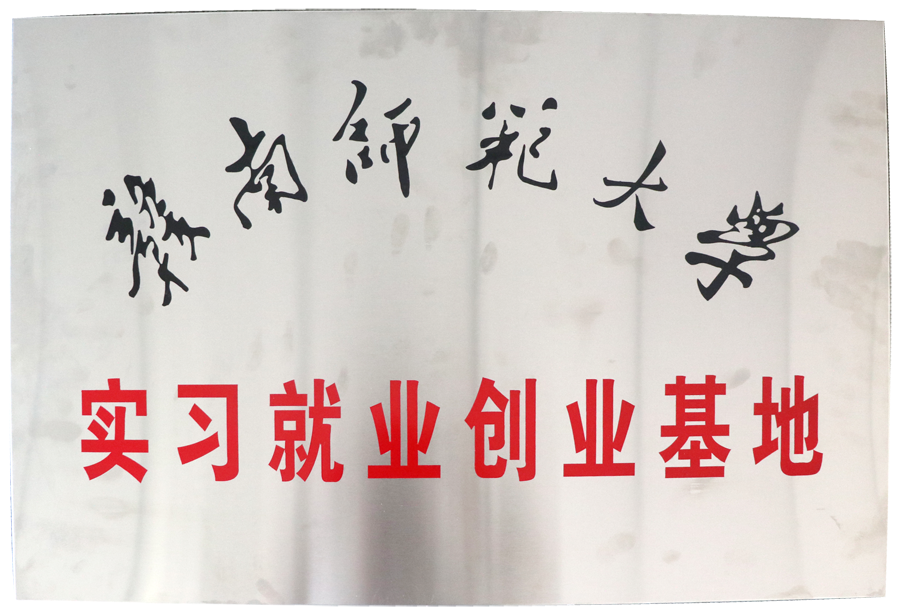 華南師範大學
实习就业创业基地